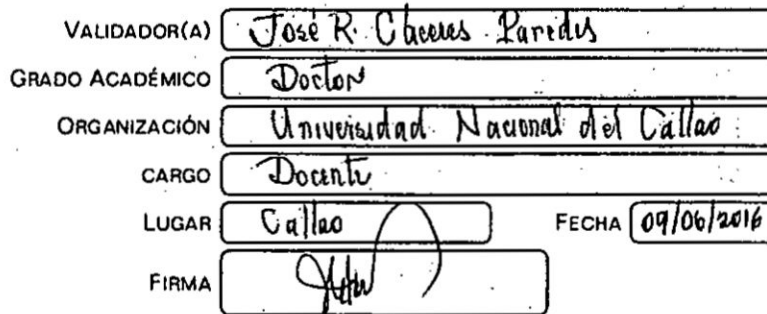 VALIDADOR(A) José R. Cáceres Paredes
GRADO ACADÉMICO Doctor
ORGANIZACIÓN Universidad Nacional del Callao
CARGO Docente
LUGAR Callao FECHA 09/06/2016
FIRMA